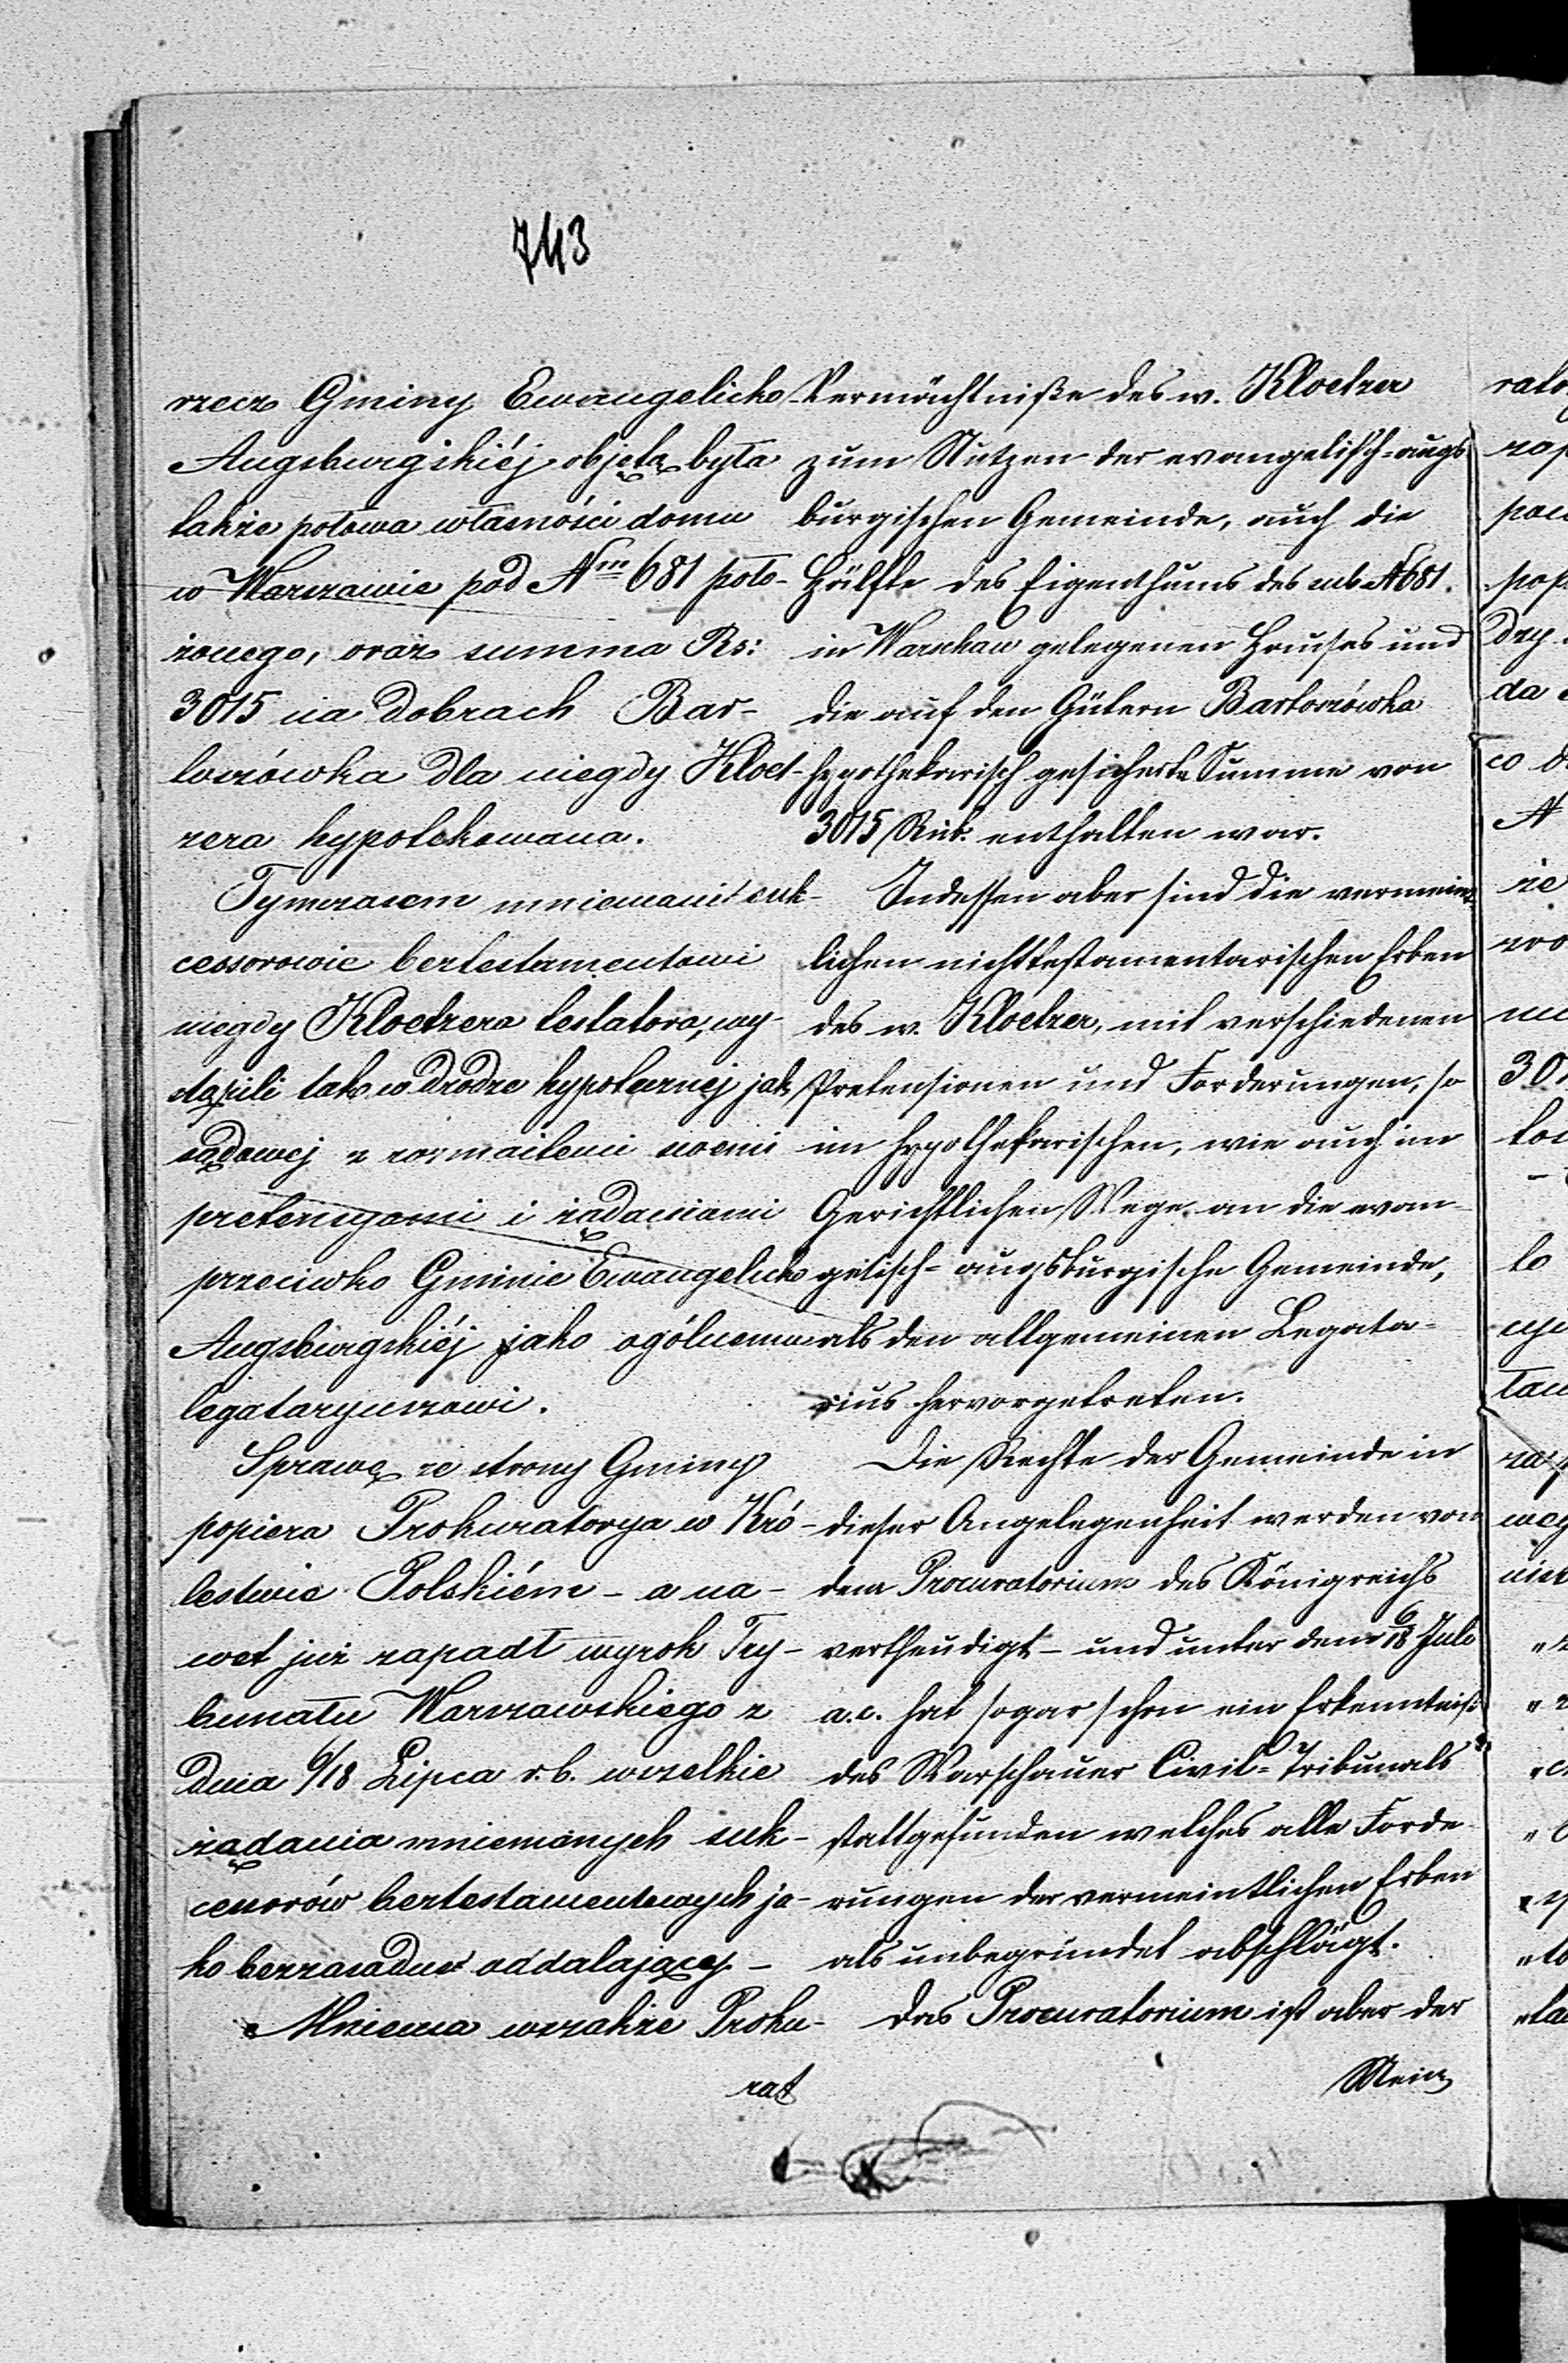 743
rzecz Gminy Ewangelicko
Augsburgskiéj objęta była
także połowa własności domu
w Warszawie pod Nm 681 poło-
żonego, oraz summa Rs:
3015 na dobrach Bar-
toszówka dla niegdy Kloet-
zera hypotekowana.
Tymczasem mniemani suk-
cessorowie beztestamentowi
niegdy Kloetzera testatora, wy-
stąpili tak w drodze hypotecznéj jak
sądowej z rozmaitemi swemi
pretensyami i żądaniami
przeciwko Gminie Ewangelicko
Augsburgskiéj jako ogólnemu
legataryuszowi.
Sprawę ze strony Gminy
popiera Prokuratorya w Kró-
lestwie Polskiém - a na-
wet już zapadł wyrok Try-
bunału Warszawskiego z
dnia 6/18 Lipca r.b. wszelkie
żądania mniemanych suk-
cessorów beztestamentowych ja-
ko bezzasadne oddalający -
Mniema wszakże Proku-
rat
Vermächtniße des w. Kloetzer
zum Nutzen der evangelisch-augs
burgischen Gemeinde, auch die
Hälfte des Eigenthums des sub N 681.
in Warschau gelegenen Hauses und
die auf den Gütern Bartoszówka
hypothekarisch gesicherte Summe von
3015 Rub. enthalten war.
Indessen aber sind die vermeint-
lichen nichttestamentarischen Erben
des w. Kloetzer, mit verschiedenen
Pretensionen und Forderungen, so
im hypothekarischen, wie auch im
Gerichtlichen Wege an die evan-
gelisch-augsburgische Gemeinde,
als den allgemeinen Legata-
rius hervorgetreten.
Die Rechte der Gemeinde in
dieser Angelegenheit werden von
dem Procuratorium des Königreichs
vertheudigt - und unter dem 6/18 Juli
a.c. hat sogar schon ein Erkenntniß
des Warschauer Civil-Tribunals
stattgefunden welches alle Forde-
rungen der vermeintlichen Erben
als unbegründet abschlägt.
Das Procuratorium ist aber der
Mein